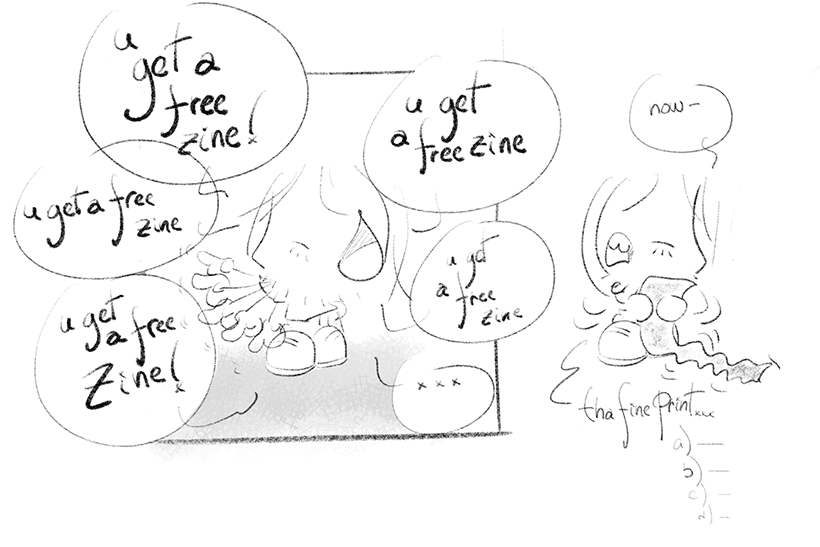 u
get a
free
zine!
u get
a free zine
now-
u get a free
zine
u get
a
free
zine
u get
a free
Zine!
x x x
tha fine print...
a) —
b) —
c) —
d) –